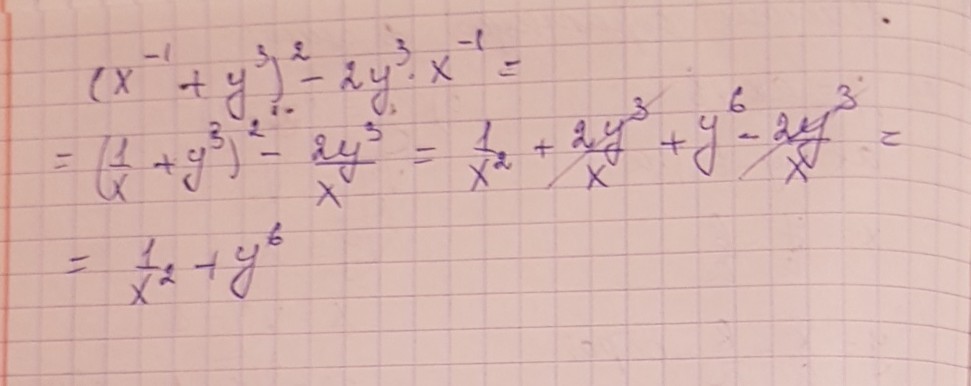 (x⁻¹ + y³)² - 2y³ · x⁻¹ =
= (1/x + y³)² - 2y³/x = 1/x² + 2y³/x + y⁶ - 2y³/x =
= 1/x² + y⁶